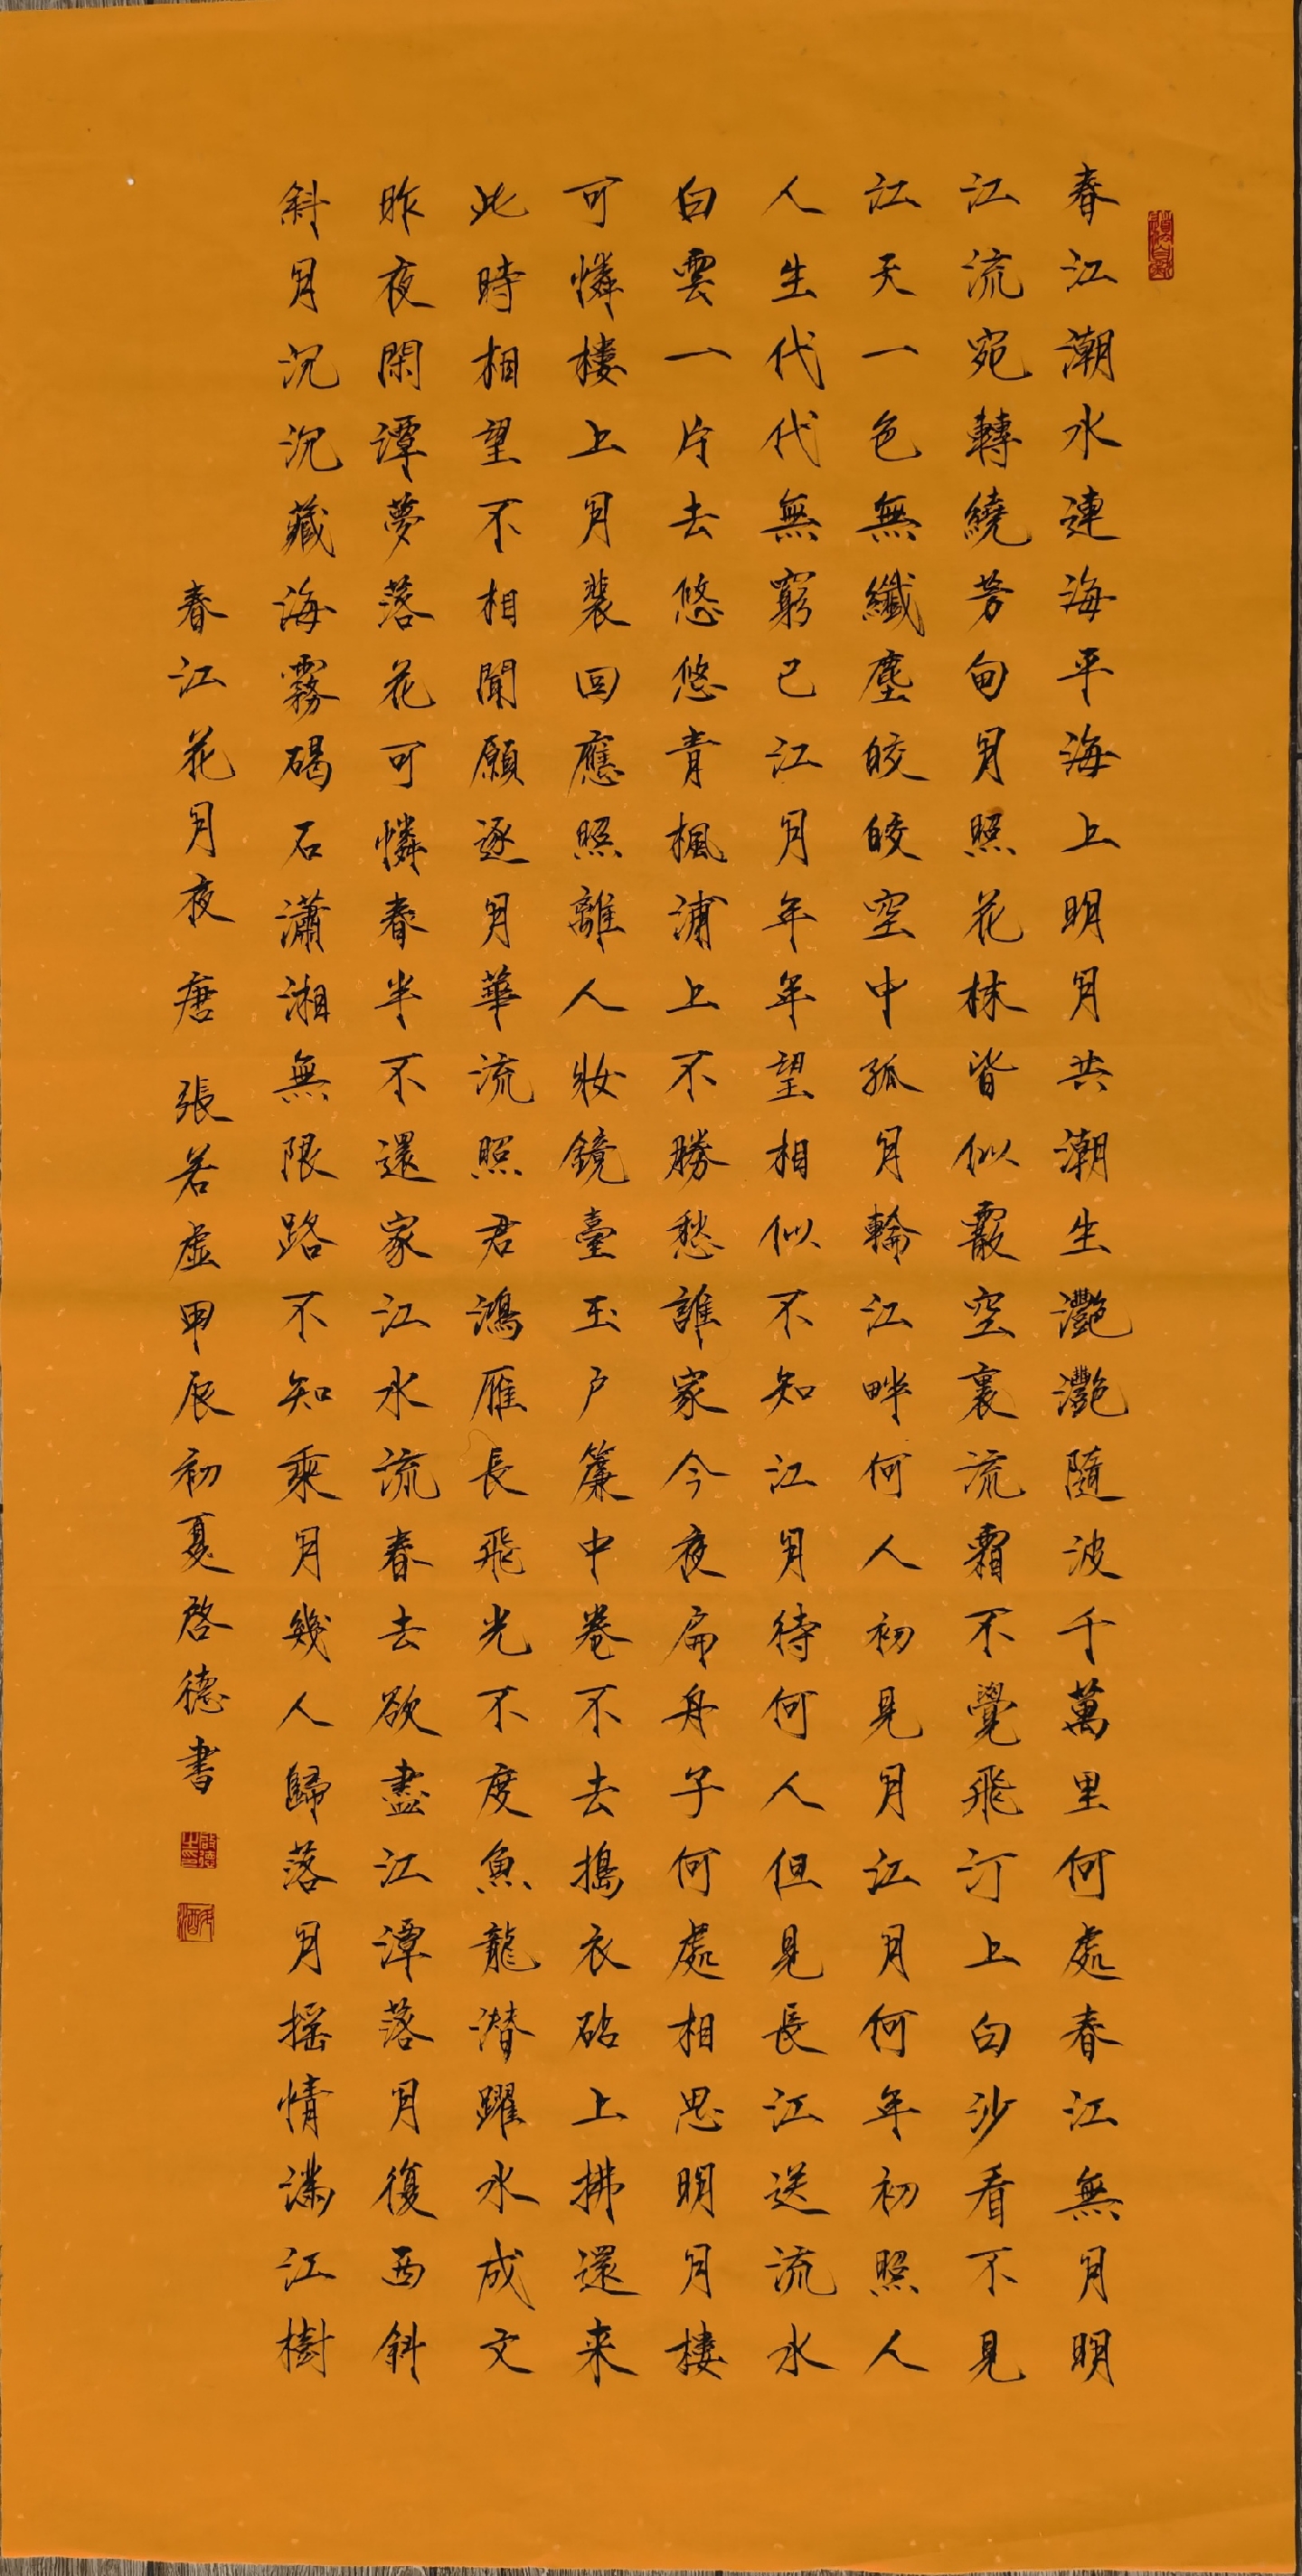 春江潮水連海平海上明月共潮生灔灔隨波千萬里何處春江無月明
江流宛轉繞芳甸月照花林皆似霰空裏流霜不覺飛汀上白沙看不見
江天一色無纖塵皎皎空中孤月輪江畔何人初見月江月何年初照人
人生代代無窮已江月年年望相似不知江月待何人但見長江送流水
白雲一片去悠悠青楓浦上不勝愁誰家今夜扁舟子何處相思明月樓
可憐樓上月裴回應照離人妝鏡臺玉户簾中卷不去搗衣砧上拂還来
此時相望不相聞願逐月華流照君鴻雁長飛光不度魚龍潛躍水成文
昨夜閑潭夢落花可憐春半不還家江水流春去欲盡江潭落月復西斜
斜月沉沉藏海霧碣石瀟湘無限路不知乘月幾人歸落月摇情满江樹
春江花月夜 唐 張若虛甲辰初夏啓德書
啟德之印